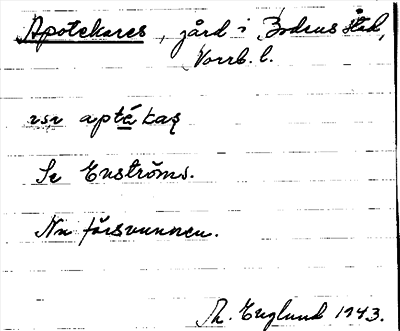 Apotekares, gård i Bodens stad,
Norrb. l.
rsr aptékaş
Se Enströms.
Nu försvunnen.
Th. Englund 1943.